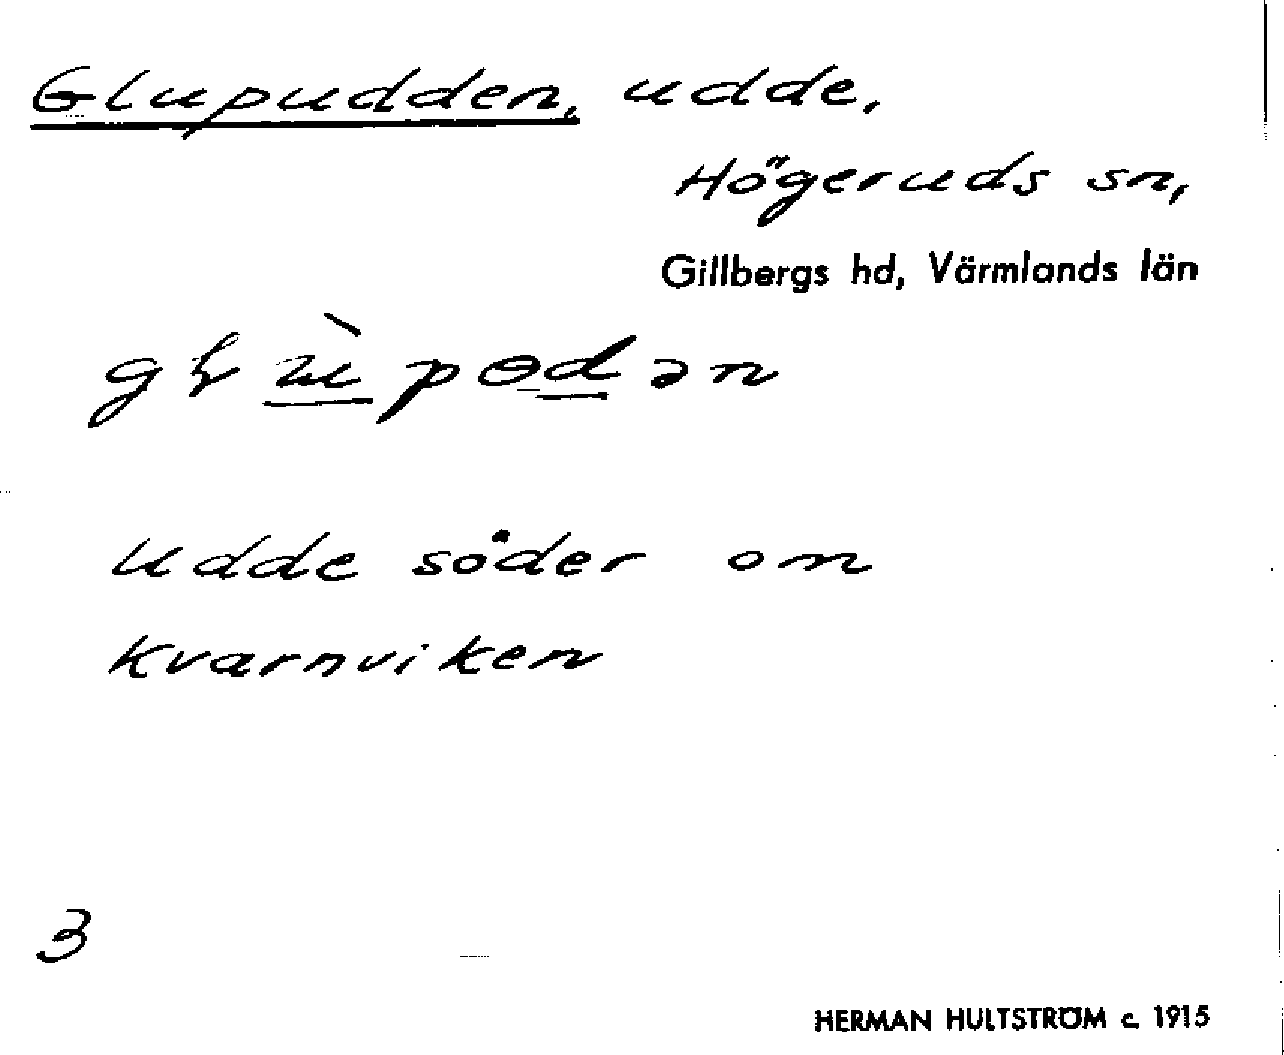 Glupudden, udde,
Högeruds sn,
Gillbergs hd, Värmlands län
Udde söder om
Kvarnviken
3
HERMAN HULTSTRÖM c. 1915